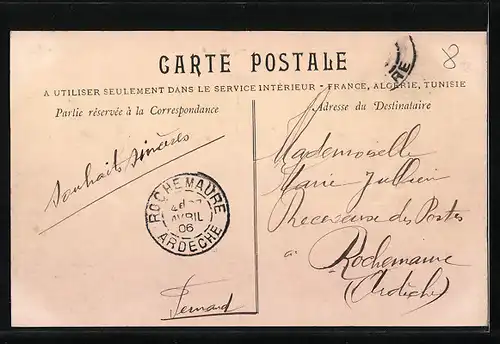 CARTE POSTALE
A UTILISER SEULEMENT DANS LE SERVICE INTÉRIEUR - FRANCE, ALGÉRIE, TUNISIE
Partie réservée à la Correspondance
Adresse du Destinataire
Souhaits sincères
Fernand
ROCHEMAURE
AVRIL
06
ARDECHE
Mademoiselle
Marie Jullien
Receveuse des Postes
a Rochemaure
(Ardèche)
8